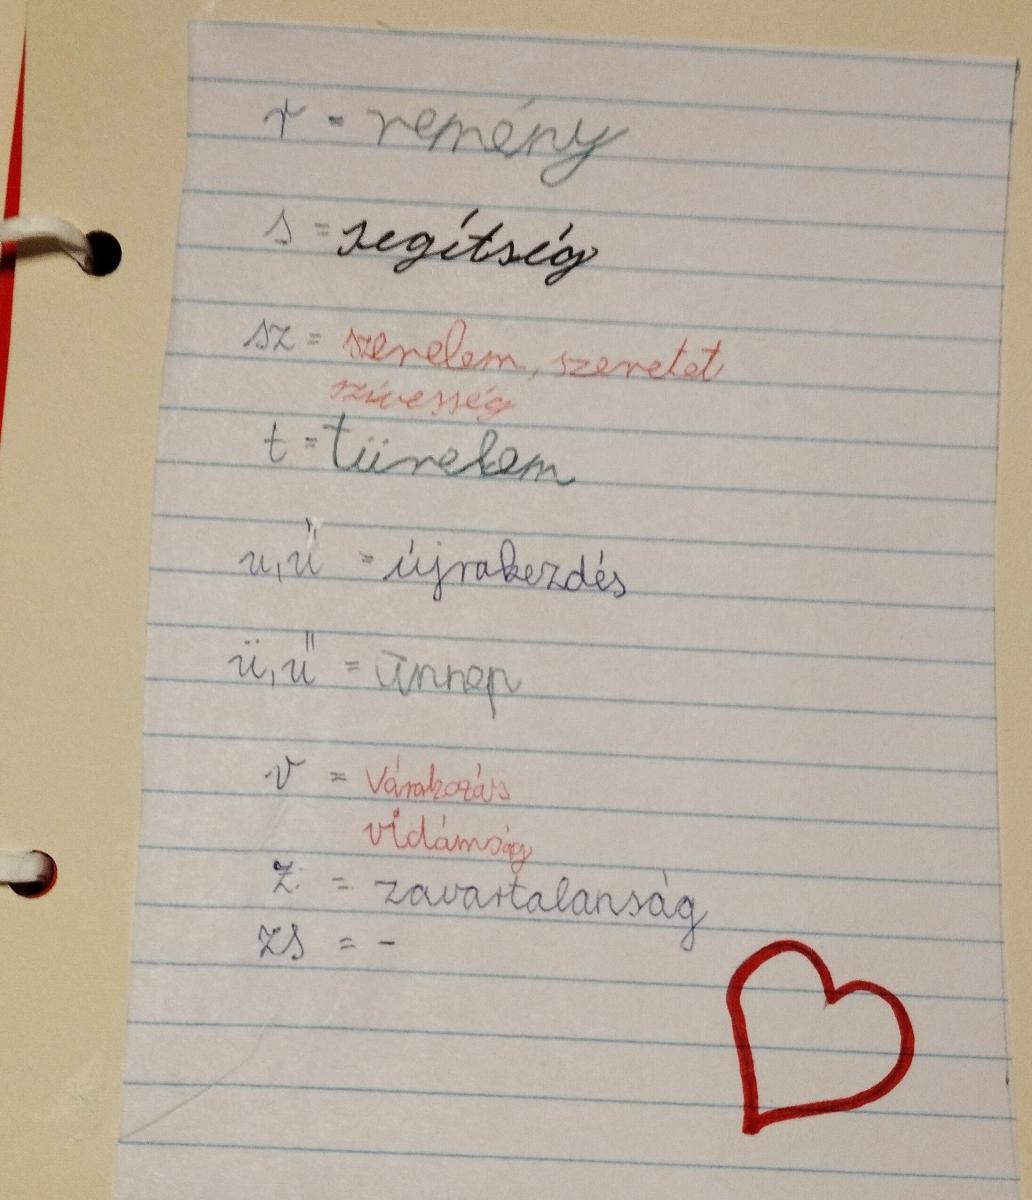 r = remény
s = segítség
sz = szerelem, szeretet
szívesség
t = türelem
u, ú = újrakezdés
ü, ű = ünnep
v = várakozás
vidámság
z = zavartalanság
zs = -